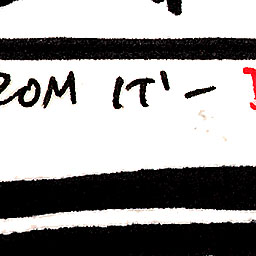 ROM IT'-